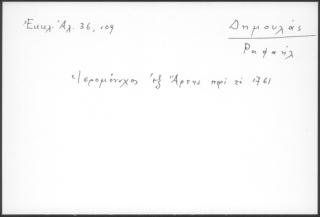 Ἐκκλ. Ἀλ. 36, 109
Δημουλάς
Ραφαήλ
Ἱερομόναχος ἐξ Ἄρτης πρὸ τὸ 1761